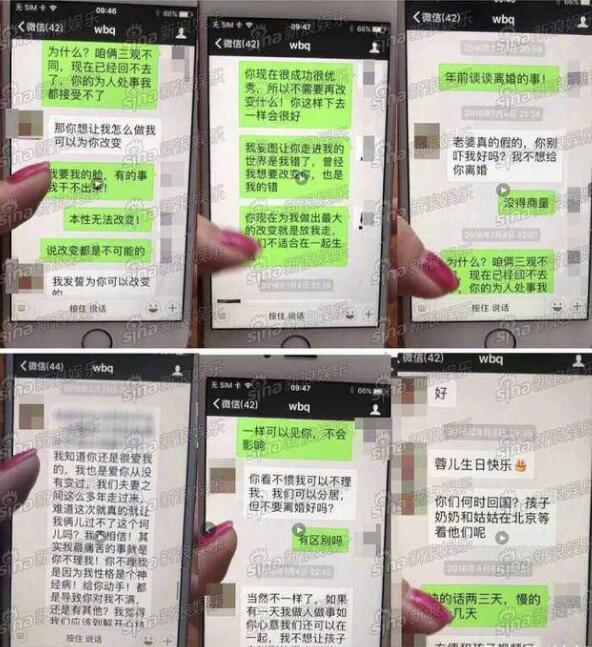 09:46
66%
微信(42)
wbq
为什么？咱俩三观不
同，现在已经回不去
了，你的为人处事我
都接受不了
那你想让我怎么做我
可以为你改变
我要我的脸，有的事
我干不出来！
本性无法改变！
说改变都是不可能的
我发誓为你可以改变
的
按住 说话
无 SIM 卡
09:47
66%
微信(42)
wbq
你现在很成功很优
秀，所以不需要再改
变什么！你这样下去
一样会很好
我妄图让你走进我的
世界是我错了，曾经
我想要改变你，也是
我的错
你现在为我做出最大
的改变就是放我走，
们不适合在一起生
2016年1月4日 22:26
按住 说话
无 SIM 卡
09:46
66%
微信(42)
wbq
年前谈谈离婚的事！
2016年1月4日 21:34
老婆真的假的，你别
吓我好吗？我不想给
你离婚
没得商量
2016年1月4日 22:07
为什么？咱俩三观不
，现在已经回不去
，你的为人处事我
按住 说话
微信(44)
wbq
我知道你还是很爱我
的，我也是爱你从没
有变过，我们夫妻之
间这么多年走过来，
难道这次就真的就让
我俩儿过不了这个坷
儿吗？我 相信！其
实我最痛苦的事就是
你不理我！你不理我
是因为我性格是个神
经病！给你动手！都
是导致你对我不满，
还是有其他？我觉得
我们应该到解开心结
按住 说话
无 SIM 卡
09:47
66%
微信(42)
wbq
一样可以见你，不会
影响
你看不惯我可以不理
我，我们可以分居，
但不要离婚好吗？
有区别吗
2016年1月4日 22:40
当然不一样了，如果
有一天我做人做事如
你心意我们还可以在
一起，我不想让孩子
按住 说话
微信(42)
wbq
好
蓉儿生日快乐
你们何时回国？孩子
奶奶和姑姑在北京等
着他们呢
快的话两三天，慢的
几天
sina新浪娱乐